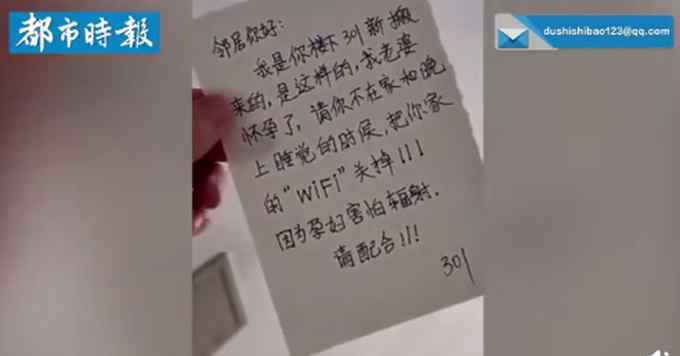 都市時報
dushishibao123@qq.com
邻居你好：
我是你楼下301新搬
来的，是这样的，我老婆
怀孕了，请你不在家和晚
上睡觉的时候，把你家
的“WiFi”关掉！！！
因为孕妇害怕辐射．
请配合！！！
301